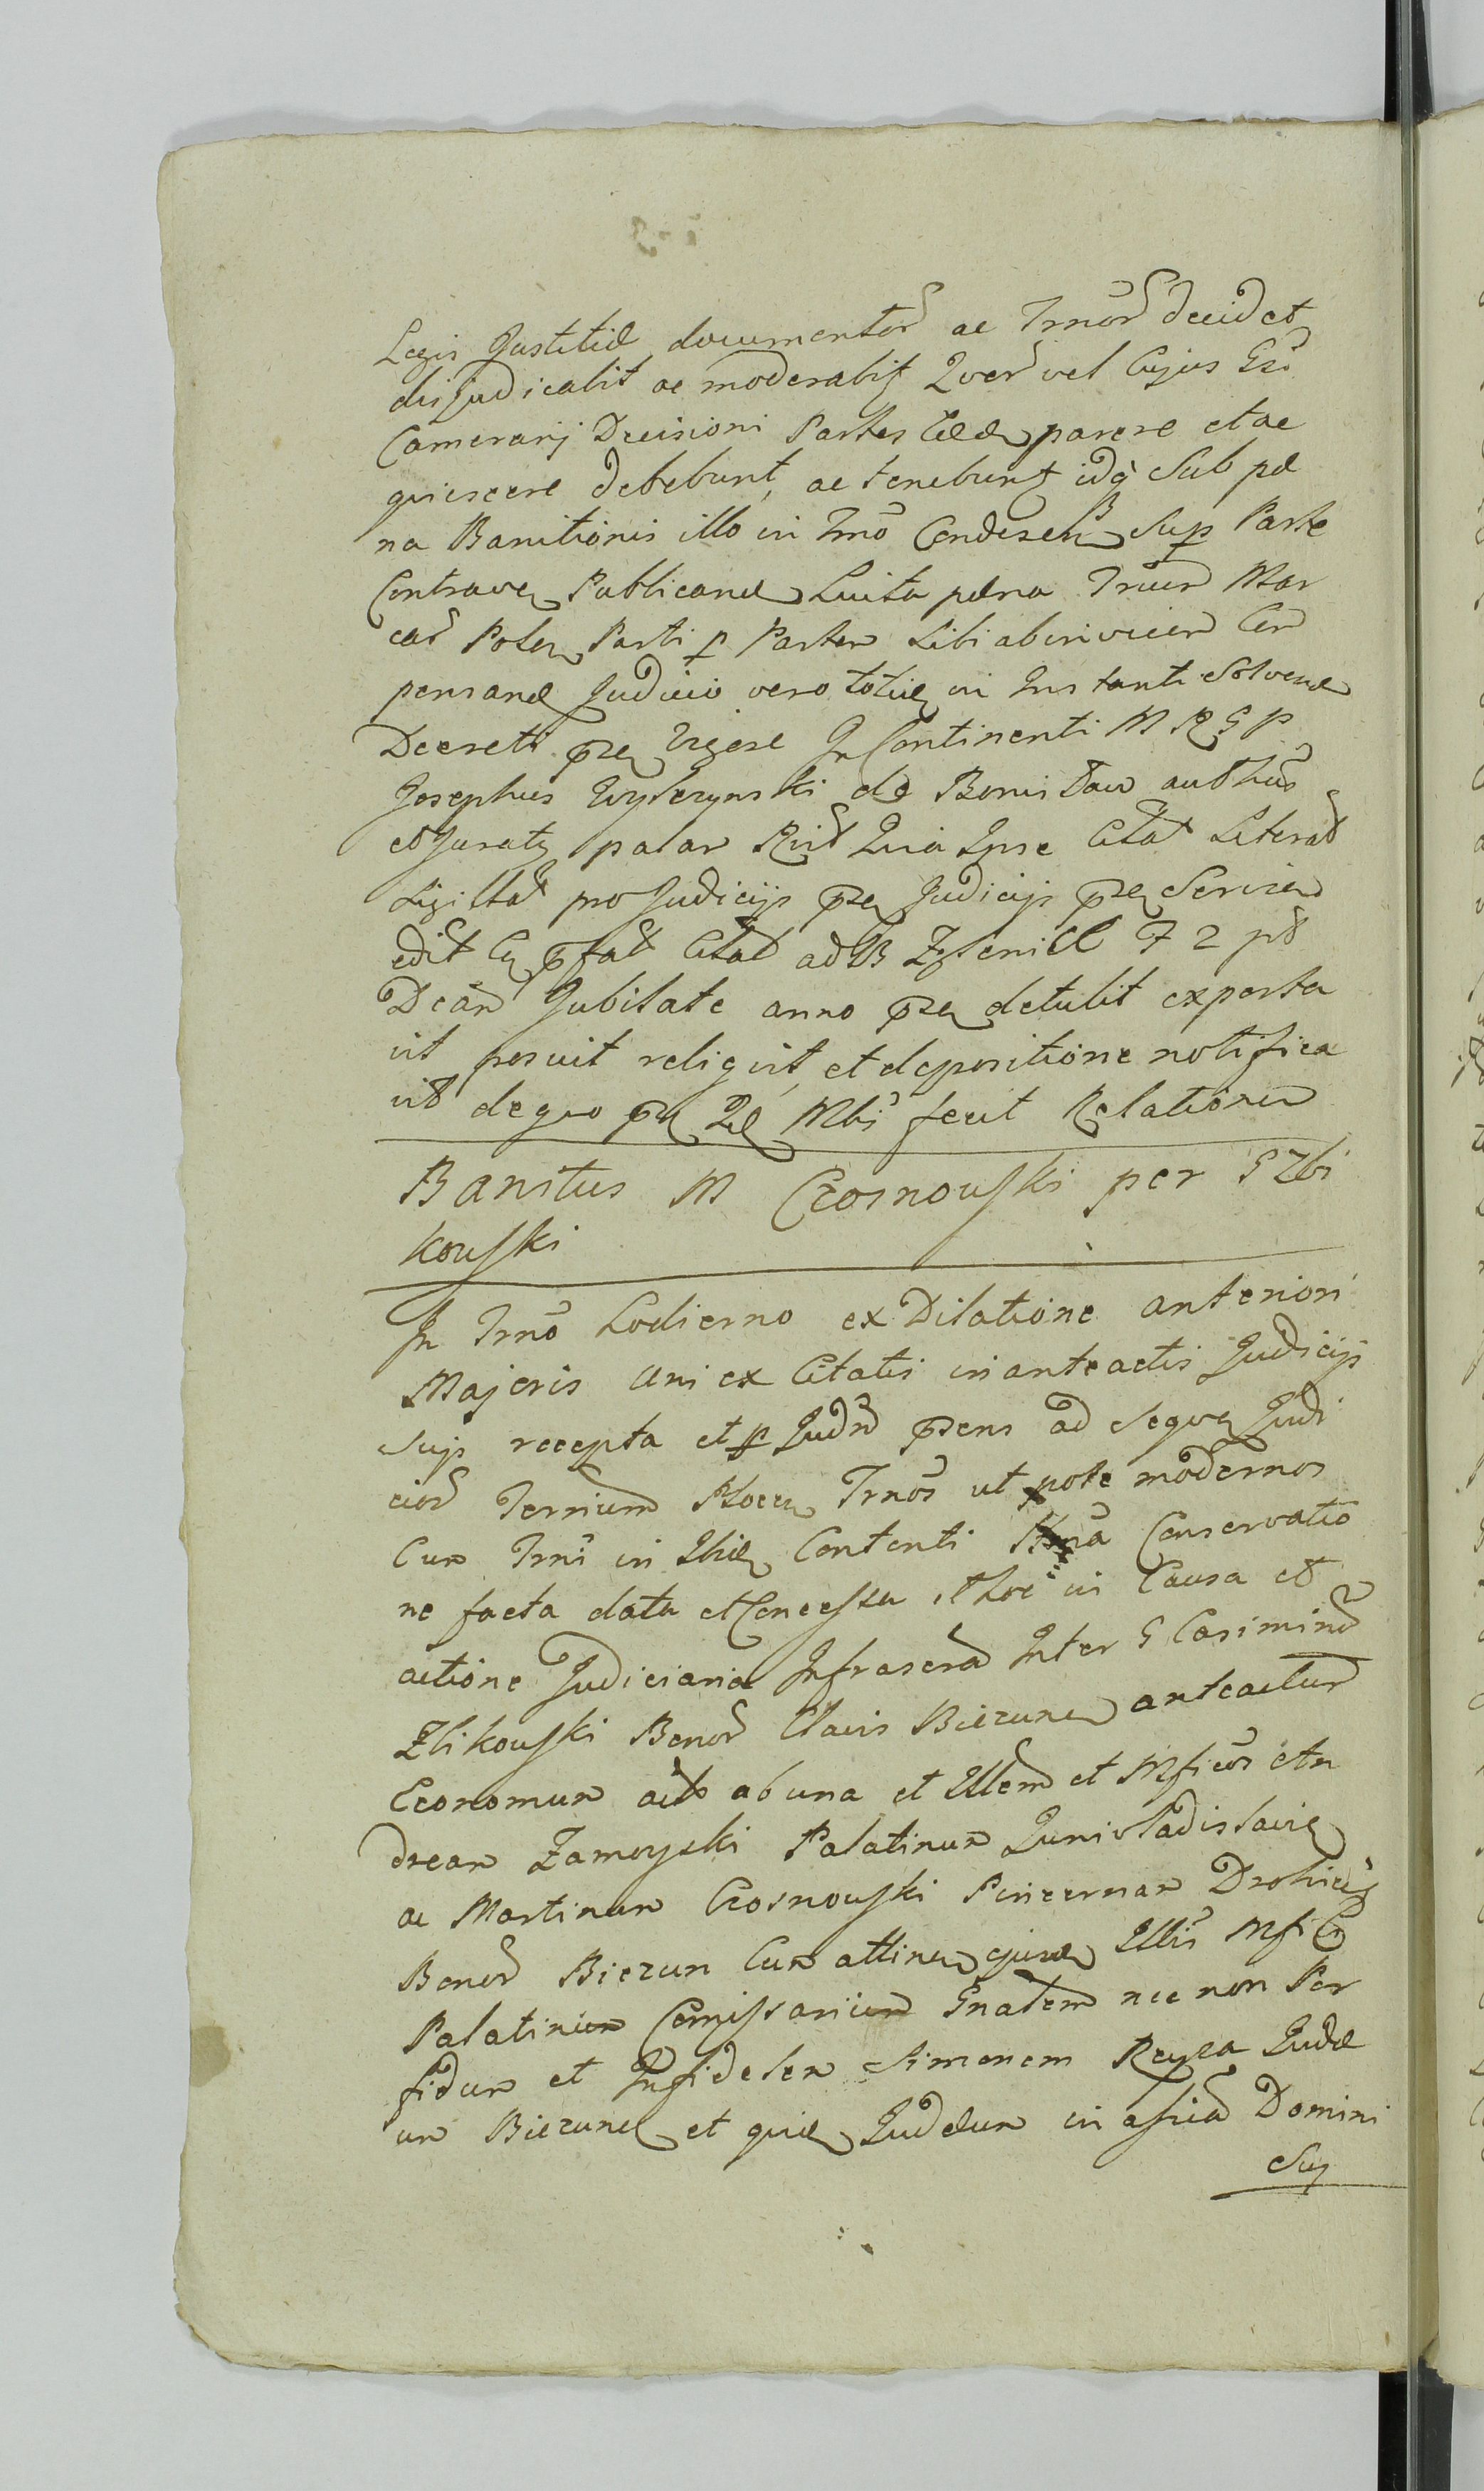 Legis Justitiæ documentor ac Trnõr decidet
disjudicabit ac moderabit Quor vel Cujus Gsi
Camerarij Decisioni Partes parere et ac
quiescere debebunt, ac tenebunt idq̀ Sub pæ
na Banitionis illo in Trno Condescen Sup Parte
Contraven Publicanđ Luita pæna Trium Mar
car Polon Parti p Partem Sibi abinvicem Com
pensanđ Judicio vero totiđ in Instanti Solvenđ
Decreti pñ Vigore In Continenti M R G P
Josephus Wyszczynski de Bonis authũs
et Juratq palam Quia Ipse Citat Literat
Sigillat pro Judicijs pñ Judicijs pñ Servien
edit pfat Citat ad B 7 2 pt
Dcãm Jubilate anno pñ detulit exporta
vit posuit reliqvit et depositione notifica
vit de quo pñ Mbi fecit Relationem
Banitus M Czosnowski per G Zbi
kowski
In Trno hodierno ex Dilatione anteriori
Majoris uni ex Citatis in anteactis Judicijs
Sujs recepta et p Judm pñens ad Sequen Judi
cior Ternium Trnõs ut pote modernos
Cum Trni in Contenti Conservatio
ne facta data et Concessa et hoc in Causa et
actione Judiciaria Infrascr Inter G Casimirũ
Zbikowski Bonor Clavis Biezunen anteactum
Economum act ab una et Illem et Mficõs An
dream Zamoyski Palatinum Junivladislavien
ac Martinum Czosnowski Pincernam Drohicien
Bonor Biezun Cum attinen ejusđ Illis Mfici
Palatini Comissarium Gnalem nec non Per
fidum et Infidelem Simonem Judæ
um Biezunen et quiđ Judæum in Domini
Suj